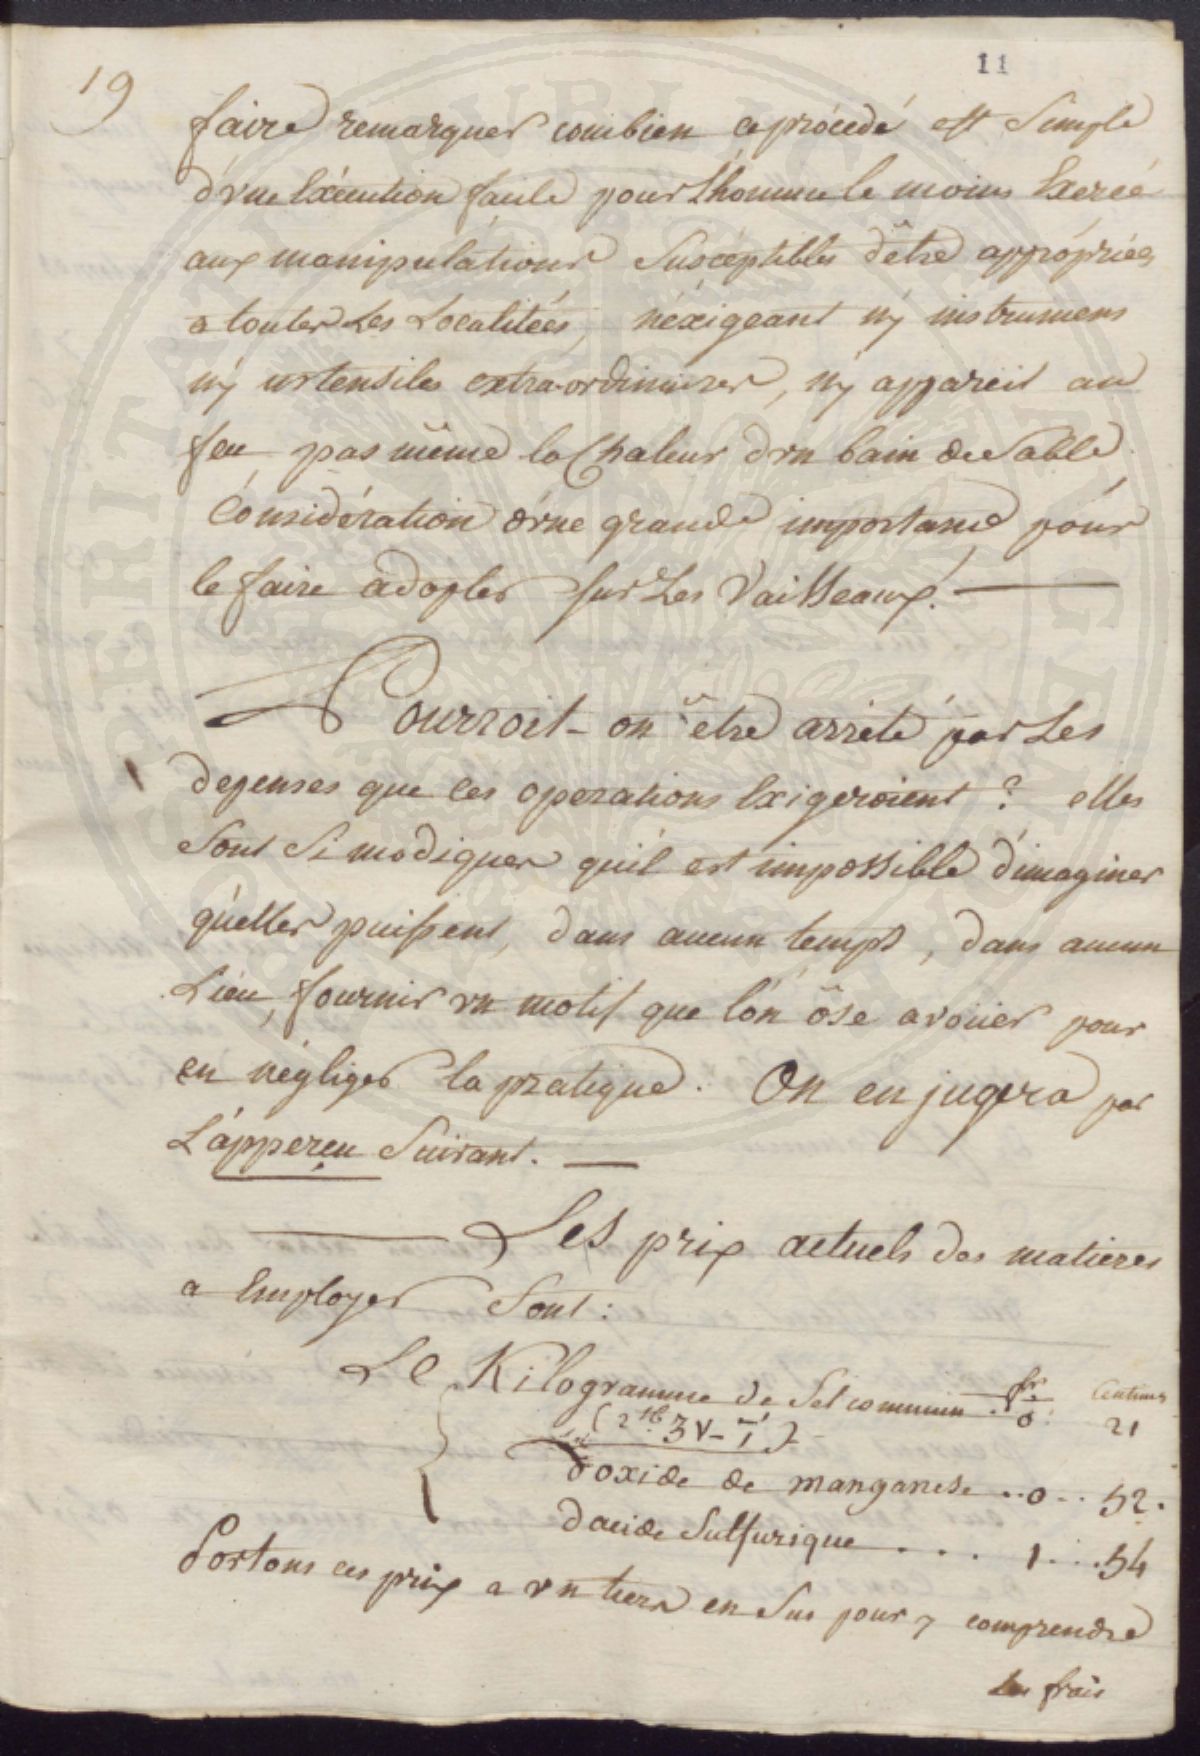 19
11
faire remarquer combien ce prócedé est Simple
d'vne Exécution facile pour L'homme le moins Exercé
aux manipulations Suscéptibles d'être apprópriées
a toutes Les Localitées, n'éxigeant ny instrumens
ny ustensiles extra-ordinaires, ny appareil au
feu pas même la Chaleur d'vn bain de Sable
Considération d'vne grande importance pour
le faire adopter sur Les Vaisseaux. —
Pourroit-on être arrêté par Les
depenses que ces operations Exigeroient ? elles
Sont Si modiques qu'il est impossible d'imaginer
qu'elles puissent, dans aucun temps, dans aucun
Lieu, fournir vn motif que l'on ôse avoüer pour
en négliger la pratique. On en jugera par
L'apperçu Suivant. —
Les prix actuels des matieres
a Employer Sont :
Le Kilogramme de Sel commun . 0 . 21
fr. Centimes
(2 lb 3 V - 1)
d'oxide de manganese .. 0 .. 52.
d'acide Sulfurique . . . . 1 . . . 54
Portons ces prix a vn tiers en Sus pour y comprendre
Les frais